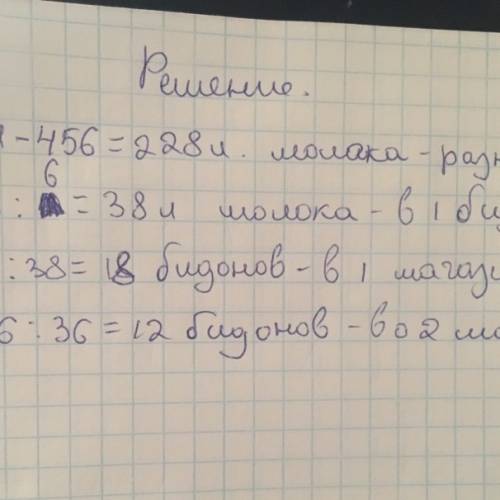 Решение.
- 456 = 228 л. молака - разн
: 6 = 38 л молока - в 1 би
: 38 = 18 бидонов - в 1 магази
6 : 36 = 12 бидонов - во 2 ма